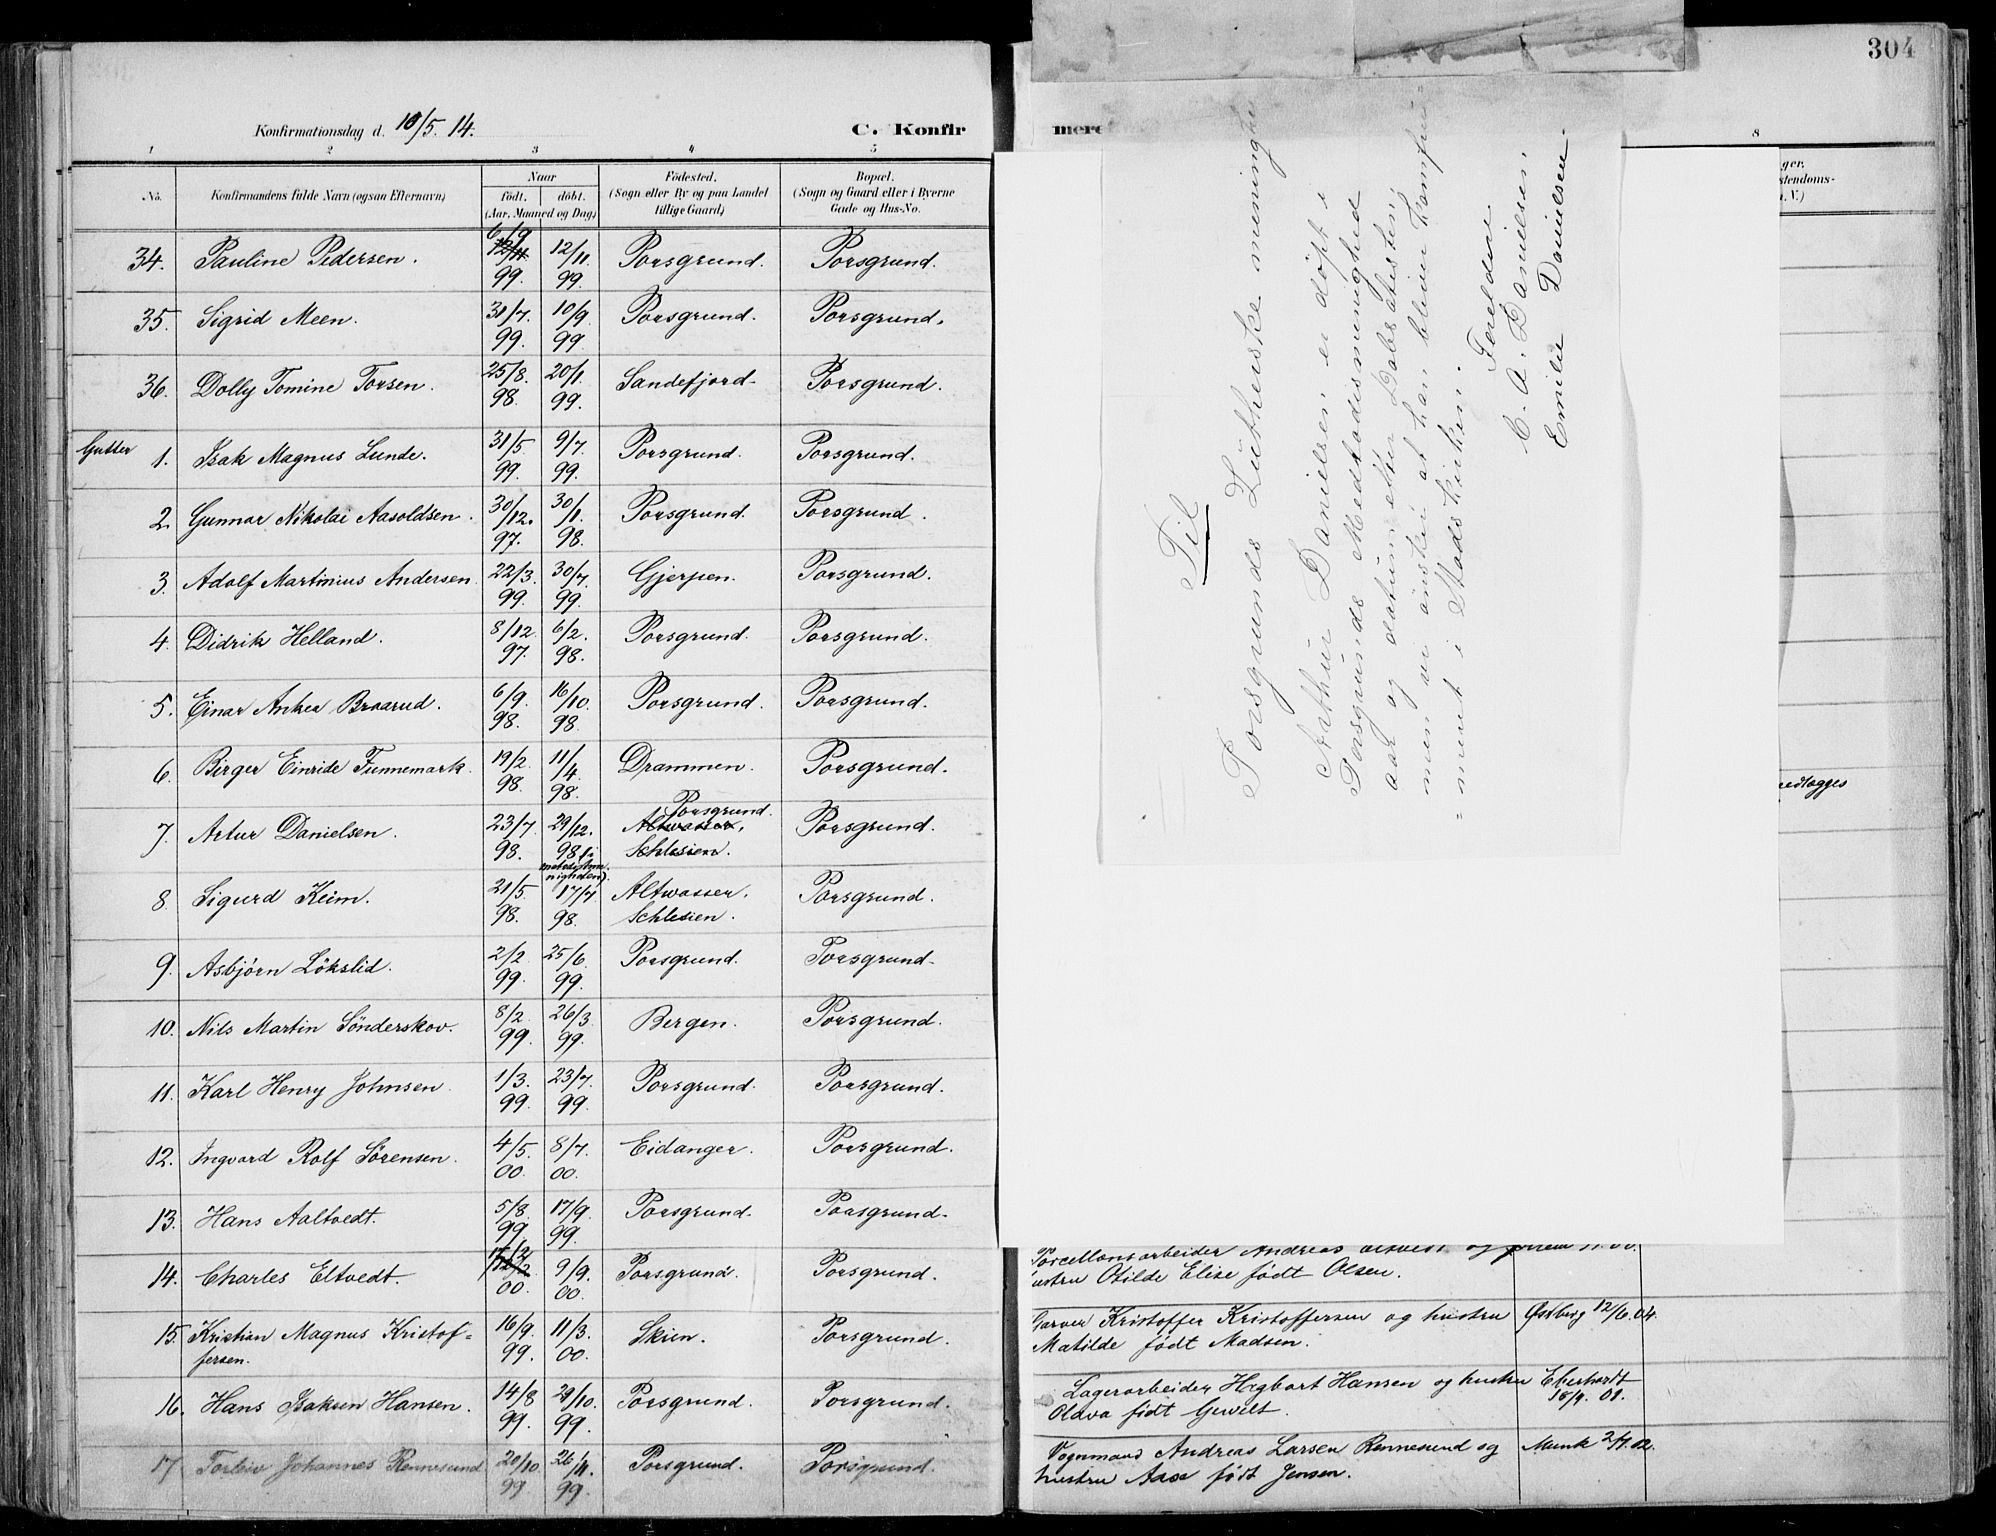 304
Konfirmationsdag d. 10/5. 14.
C. Konfir
1 2 3 4 5 8
No. Konfirmandens fulde Navn (ogsaa Efternavn) Naar født. døbt. (Aar, Maaned og Dag) Fødested. (Sogn eller By og paa Landet tillige Gaard) Bopæl. (Sogn og Gaard eller i Byerne Gade og Hus-No.
34. Pauline Pedersen. 6/9 12/11 99. 12/11 99. Porsgrund. Porsgrund.
35. Sigrid Meen. 31/7. 99. 10/9 99 Porsgrund. Porsgrund.
36. Dolly Tomine Torsen. 25/8. 98. 20/1. 99. Sandefjord. Porsgrund.
Gutter 1. Isak Magnus Lunde. 31/5 99. 9/7 99. Porsgrund. Porsgrund.
2. Gunnar Nikolai Aasoldsen. 30/12. 97. 30/1. 98. Porsgrund. Porsgrund.
3. Adolf Martinius Andersen 22/3. 99. 30/7 99. Gjerpen. Porsgrund.
4. Didrik Helland. 8/12. 97. 6/2. 98. Porsgrund. Porsgrund.
5. Einar Anker Braarud. 6/9. 98. 16/10. 98 Porsgrund. Porsgrund.
6. Birger Einride Funnemark. 19/2. 98. 11/4 98. Drammen. Porsgrund.
7. Artur Danielsen. 23/7 98. 29/12. 98 (i Porsgrund. Altwasser, Schlesien. Porsgrund.
8. Sigurd Keim. 21/5 98. 17/7 98. Altwasser. Schlesien. Porsgrund.
9. Asbjørn Løkslid. 2/2 99. 25/6. 99. Porsgrund. Porsgrund.
10. Nils Martin Sønderskov. 8/2 99. 26/3 99. Bergen. Porsgrund.
11. Karl Henry Johnsen. 1/3. 99. 23/7. 99. Porsgrund. Porsgrund.
12. Ingvard Rolf Sørensen. 4/5. 00. 8/7. 00. Eidanger. Porsgrund.
13. Hans Aaltvedt. 5/8. 99. 17/9. 99. Porsgrund. Porsgrund.
14. Charles Eltvedt. 00. 9/9. 00. Porsgrund. Porsgrund.
15. Kristian Magnus Kristof-
fersen. 16/9. 99. 11/3. 00. Skien. Porsgrund.
16. Hans Isaksen Hansen. 14/8 99. 29/10. 99. Porsgrund. Porsgrund.
17 Torleiv Johannes Rennesund 20/10. 99 26/11. 99. Porsgrund. Porsgrund.
Til
Porsgrunds Lutherske menninghe
Arthur Danielsen er døpt i
Porsgrunds Medthodismenighed
aar og datum etter Dabsatisten;
men vi ønsker at han bliver Komfir=
=meret i Stadskirken.
Foreldre
C. A. Danielsen.
Emilie Danielsen.
Porcellansarbeider Andreas
hustru Otilde Elise født Olsen.
Garver Kristoffer Kristoffersen og hustru Østberg 12/6. 04.
Matilde født Madsen.
Lagerarbeider Hagbart Hansen og hustru Eberhardt
Olava født Gewelt.
Vognmand Andreas Larsen Rennesund og Munk 2/7. 02.
hustru Aase født Jensen.